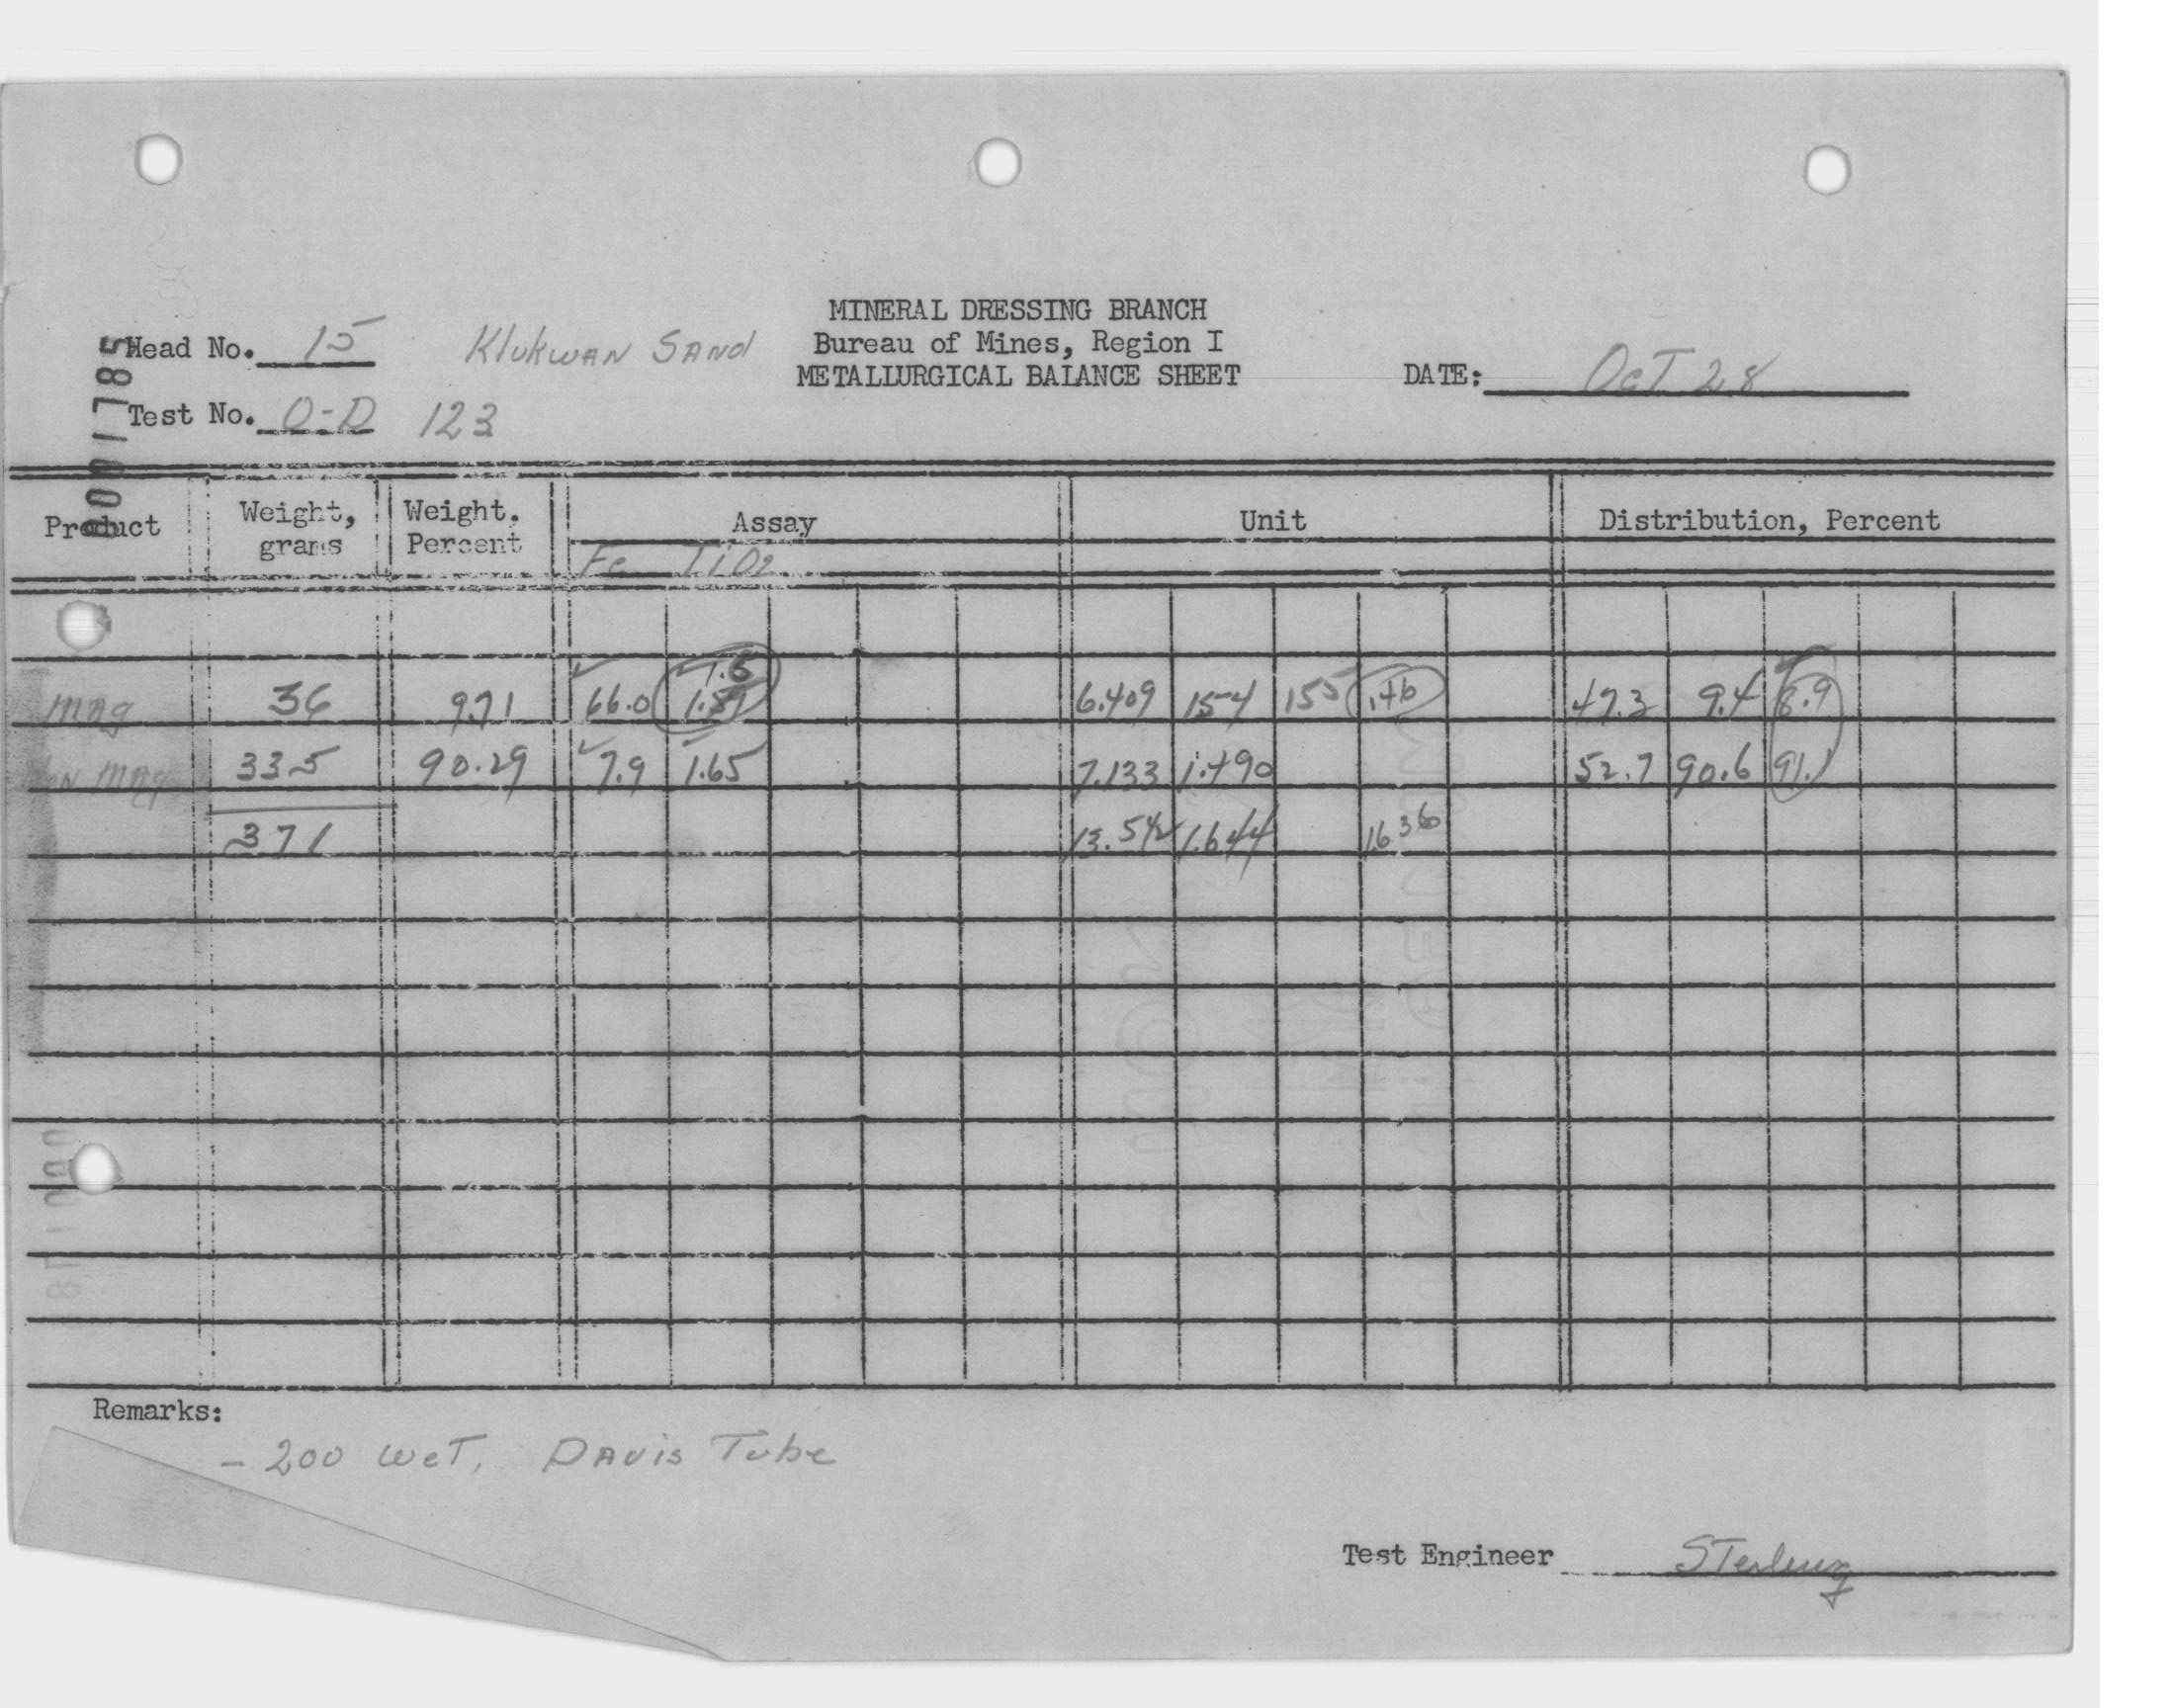 MINERAL DRESSING BRANCH
Head No. 15 Klukwan Sand Bureau of Mines, Region I
METALLURGICAL BALANCE SHEET DATE: Oct 28
Test No. O-D 123
00017185
Product Weight, grams Weight. Percent Assay Unit Distribution, Percent
Fe TiO2
1.5
mag 36 9.71 66.0 1.59 6.409 154 155 .146 47.3 9.4 8.9
on mag 335 90.29 7.9 1.65 7.133 1.490 52.7 90.6 91.1
371 13.542 1.644 1.636
Remarks:
- 200 wet, Davis Tube
Test Engineer Sterling